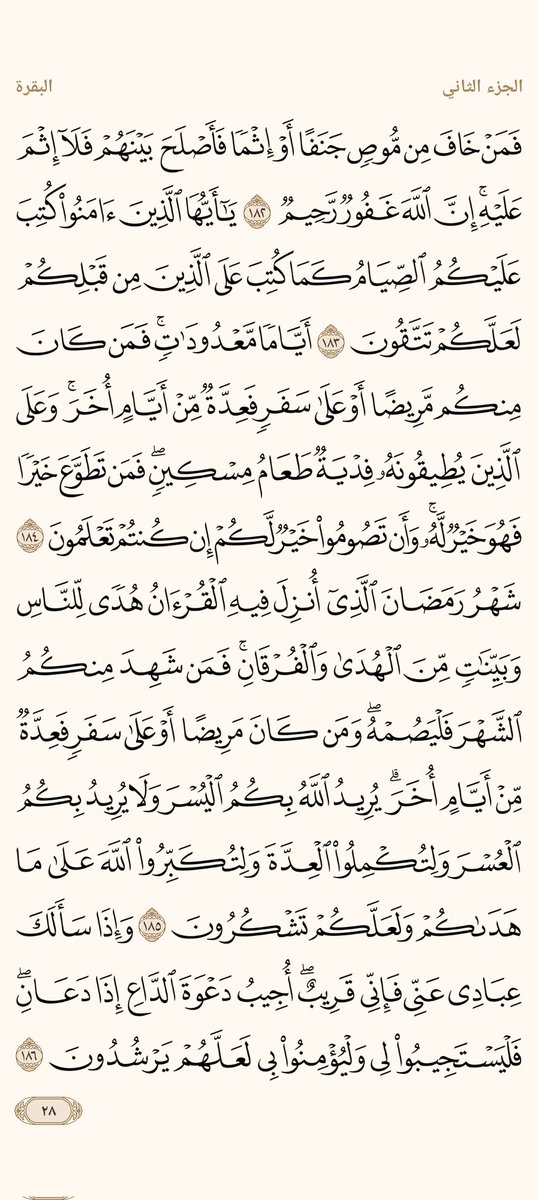 الجزء الثاني
البقرة
فَمَنْ خَافَ مِن مُّوصٍ جَنَفًا أَوْ إِثْمًا فَأَصْلَحَ بَيْنَهُمْ فَلَآ إِثْمَ
عَلَيْهِ ۚ إِنَّ ٱللَّهَ غَفُورٌ رَّحِيمٌ ١٨٢ يَـٰٓأَيُّهَا ٱلَّذِينَ ءَامَنُوا۟ كُتِبَ
عَلَيْكُمُ ٱلصِّيَامُ كَمَا كُتِبَ عَلَى ٱلَّذِينَ مِن قَبْلِكُمْ
لَعَلَّكُمْ تَتَّقُونَ ١٨٣ أَيَّامًا مَّعْدُودَٰتٍ ۚ فَمَن كَانَ
مِنكُم مَّرِيضًا أَوْ عَلَىٰ سَفَرٍ فَعِدَّةٌ مِّنْ أَيَّامٍ أُخَرَ ۚ وَعَلَى
ٱلَّذِينَ يُطِيقُونَهُۥ فِدْيَةٌ طَعَامُ مِسْكِينٍ ۖ فَمَن تَطَوَّعَ خَيْرًا
فَهُوَ خَيْرٌ لَّهُۥ ۚ وَأَن تَصُومُوا۟ خَيْرٌ لَّكُمْ إِن كُنتُمْ تَعْلَمُونَ ١٨٤
شَهْرُ رَمَضَانَ ٱلَّذِىٓ أُنزِلَ فِيهِ ٱلْقُرْءَانُ هُدًى لِّلنَّاسِ
وَبَيِّنَـٰتٍ مِّنَ ٱلْهُدَىٰ وَٱلْفُرْقَانِ ۚ فَمَن شَهِدَ مِنكُمُ
ٱلشَّهْرَ فَلْيَصُمْهُ ۖ وَمَن كَانَ مَرِيضًا أَوْ عَلَىٰ سَفَرٍ فَعِدَّةٌ
مِّنْ أَيَّامٍ أُخَرَ ۗ يُرِيدُ ٱللَّهُ بِكُمُ ٱلْيُسْرَ وَلَا يُرِيدُ بِكُمُ
ٱلْعُسْرَ وَلِتُكْمِلُوا۟ ٱلْعِدَّةَ وَلِتُكَبِّرُوا۟ ٱللَّهَ عَلَىٰ مَا
هَدَىٰكُمْ وَلَعَلَّكُمْ تَشْكُرُونَ ١٨٥ وَإِذَا سَأَلَكَ
عِبَادِى عَنِّى فَإِنِّى قَرِيبٌ ۖ أُجِيبُ دَعْوَةَ ٱلدَّاعِ إِذَا دَعَانِ ۖ
فَلْيَسْتَجِيبُوا۟ لِى وَلْيُؤْمِنُوا۟ بِى لَعَلَّهُمْ يَرْشُدُونَ ١٨٦
٢٨